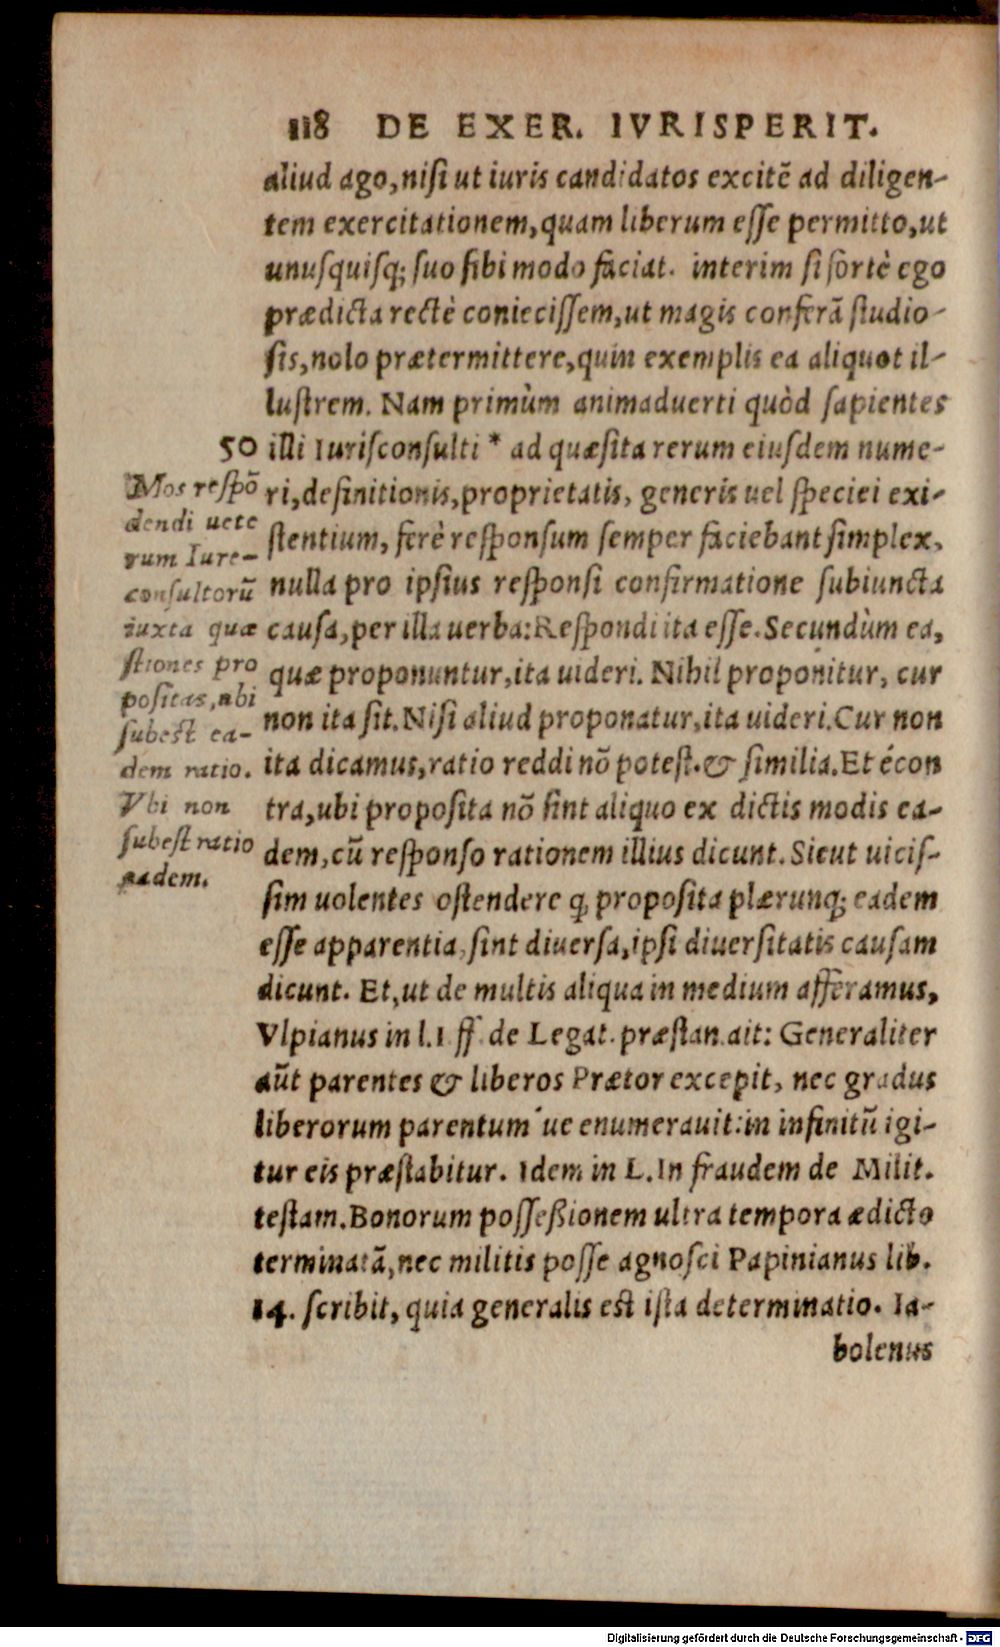 118 DE EXER. IVRISPERIT.
aliud ago, niſi ut iuris candidatos excitē ad diligen-
tem exercitationem, quam liberum eſſe permitto, ut
unuſquiſq; ſuo ſibi modo faciat. interim ſi fortè ego
prædicta rectè conieciſſem, ut magis conferā ſtudio-
ſis, nolo prætermittere, quin exemplis ea aliquot il-
luſtrem. Nam primùm animaduerti quòd ſapientes
50 illi Iuriſconſulti * ad quæſita rerum eiuſdem nume-
ri, definitionis, proprietatis, generis uel ſpeciei exi-
ſtentium, ferè reſponſum ſemper faciebant ſimplex,
nulla pro ipſius reſponſi confirmatione ſubiuncta
cauſa, per illa uerba: Reſpondi ita eſſe. Secundùm ea,
quæ proponuntur, ita uideri. Nihil proponitur, cur
non ita ſit. Niſi aliud proponatur, ita uideri. Cur non
ita dicamus, ratio reddi nō poteſt. & ſimilia. Et écon
tra, ubi propoſita nō ſint aliquo ex dictis modis ea-
dem, cū reſponſo rationem illius dicunt. Sicut uiciſ-
ſim uolentes oſtendere ꝙ propoſita plærunq; eadem
eſſe apparentia, ſint diuerſa, ipſi diuerſitatis cauſam
dicunt. Et, ut de multis aliqua in medium afferamus,
Vlpianus in l.1 ff. de Legat. præſtan. ait: Generaliter
aūt parentes & liberos Prætor excepit, nec gradus
liberorum parentum'ue enumerauit: in infinitū igi-
tur eis præſtabitur. Idem in L. In fraudem de Milit.
teſtam. Bonorum poſſeßionem ultra tempora ædicto
terminatā, nec militis poſſe agnoſci Papinianus lib.
14. ſcribit, quia generalis eſt iſta determinatio. Ia-
bolenus
Mos reſpō
dendi uete
rum Iure-
conſultorū
iuxta quæ
ſtiones pro
poſitas, ubi
ſubeſt ea-
dem ratio.
Vbi non
ſubeſt ratio
eadem.
Digitalisierung gefördert durch die Deutsche Forschungsgemeinschaft - DFG